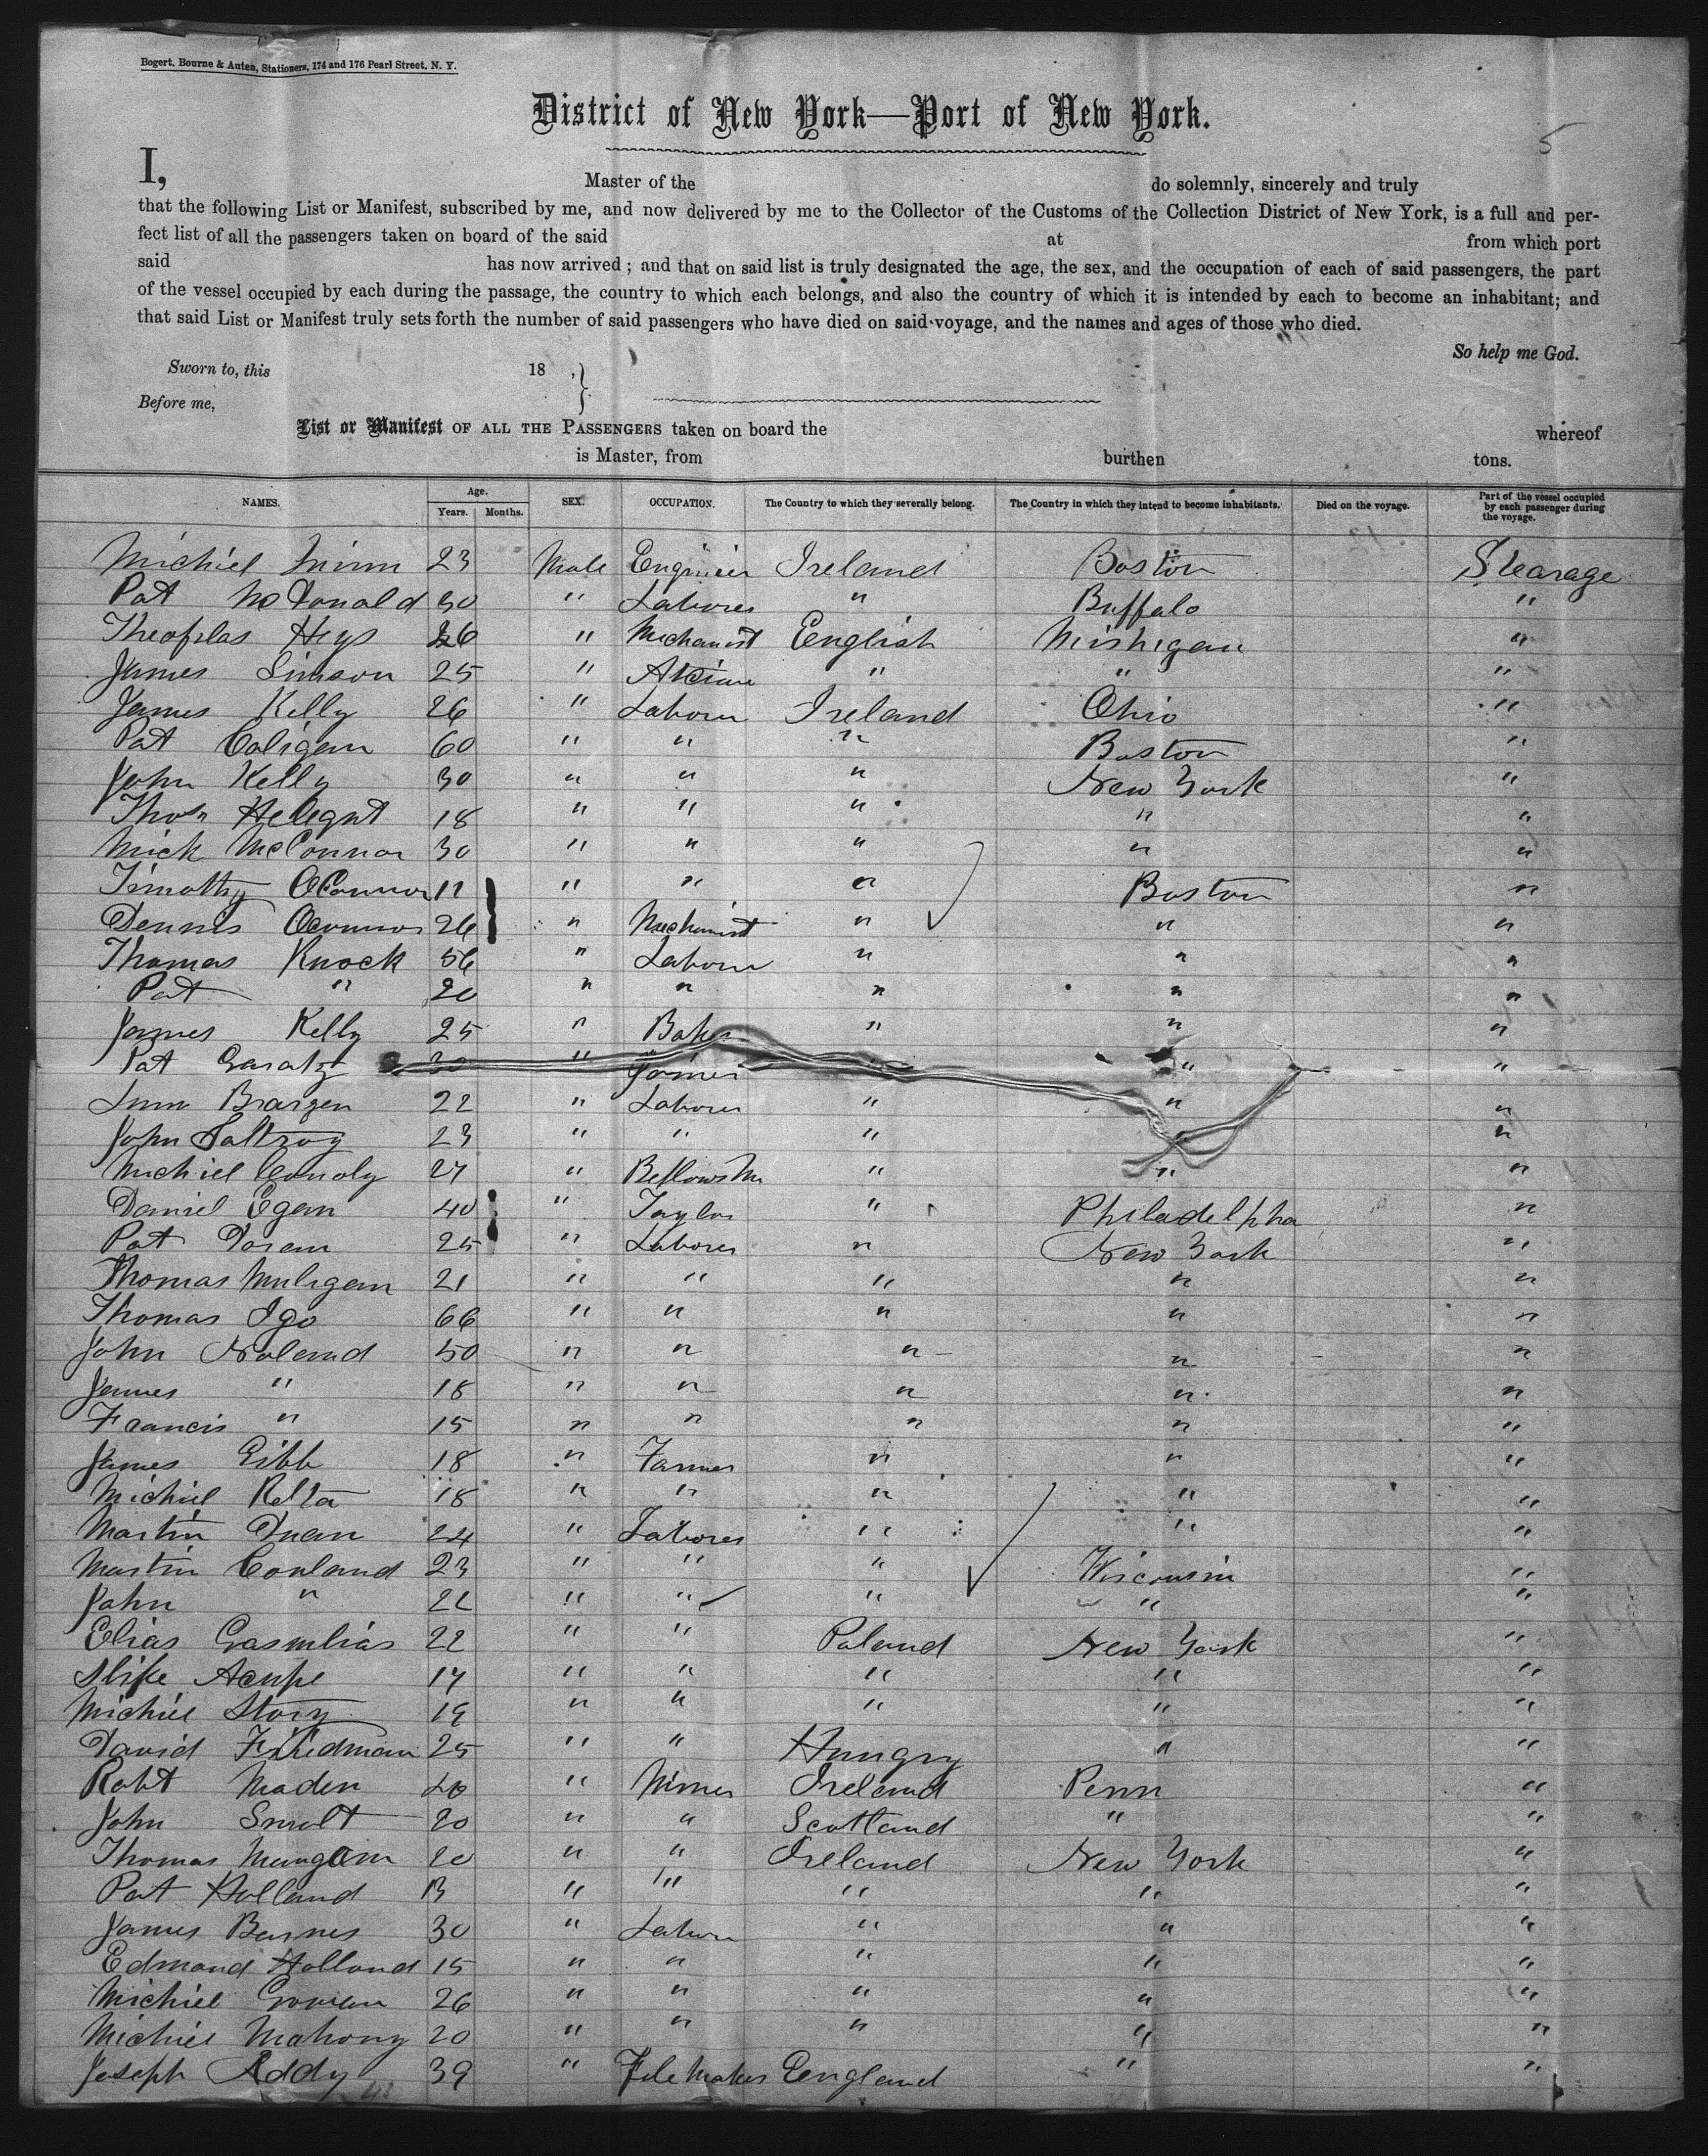 Bogert, Bourne & Auten, Stationers, 174 and 176 Pearl Street, N. Y.
District of New York—Port of New York.
5
I, Master of the do solemnly, sincerely and truly
that the following List or Manifest, subscribed by me, and now delivered by me to the Collector of the Customs of the Collection District of New York, is a full and per-
fect list of all the passengers taken on board of the said at from which port
said has now arrived ; and that on said list is truly designated the age, the sex, and the occupation of each of said passengers, the part
of the vessel occupied by each during the passage, the country to which each belongs, and also the country of which it is intended by each to become an inhabitant; and
that said List or Manifest truly sets forth the number of said passengers who have died on said voyage, and the names and ages of those who died.
So help me God.
Sworn to, this 18 ,
Before me,
List or Manifest OF ALL THE PASSENGERS taken on board the whereof
is Master, from burthen tons.
NAMES. Age. Years. Months. SEX. OCCUPATION. The Country to which they severally belong. The Country in which they intend to become inhabitants. Died on the voyage. Part of the vessel occupied by each passenger during the voyage.
Michiel 23 Male Engineer Ireland Boston Stearage
Pat McDonald 30 " Laborer " Buffalo "
Heys 26 " Mechanist Eenglish Mishigan "
James Simson 25 " " " "
James Kelly 26 " Laborer Ireland Ohio "
Pat Coligan 60 " " " Boston "
John Kelly 30 " " " New York "
Thos 18 " " " " "
Mick McConnor 30 " " " " "
Timothy OConnor 11 " " " Boston "
Dennis Oconnor 26 " Mechanist " " "
Thomas Knock 56 " Laborer " " "
Pat " 20 " " " " "
James Kelly 25 " Baker " " "
Pat " " "
22 " Laborer " " "
John 23 " " " "
Michiel Conoly 27 " " " "
Daniel Egan 40 " Taylor " Philadelpha "
Pat Doran 25 " Laborer " New York "
Thomas Muligan 21 " " " " "
Thomas Igo 66 " " " " "
John Noland 50 " " " " "
James " 18 " " " " "
Francis " 15 " " " " "
James Gibb 18 " Farmer " " "
Michiel 18 " " " " "
Martin 24 " Laborer " " "
Martin Conland 23 " " " Wisconsin "
John " 22 " " " " "
Elias 22 " " Poland New York "
17 " " " " "
Michiel Story 19 " " " " "
David Friedman 25 " " Hungry " "
Robt Maden 40 " Miner Ireland Penn "
John 20 " " Scotland " "
Thomas Mangan 20 " " Ireland New York "
Pat Holland 13 " " " " "
James Barnes 30 " Labor " " "
Edmond Holland 15 " " " " "
Michiel 26 " " " " "
Michiel Mahony 20 " " " " "
Joseph Addy 39 " File Maker Eengland " "